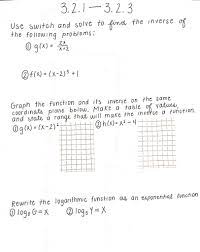 3.2.1 — 3.2.3
Use switch and solve to find the inverse of
the following problems:
① g(x) = 2x/x+2
② f(x) = (x-2)³ + 1
Graph the function and its inverse on the same
coordinate plane below. Make a table of values,
and state a range that will make the inverse a function.
① g(x) = (x-2)² ② h(x) = x² - 4
Rewrite the logarithmic function as an exponential function
① log₅ G = X ② log₅ Y = X